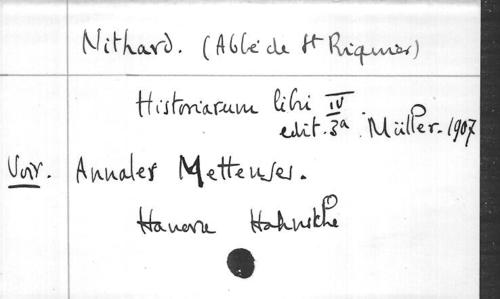 Nithard. (Abbé de St Riquier)
Historiarum libri IV
edit. 3a. Müller. 1907
Voir. Annales Mettenses.
Hanovre Hahnsche